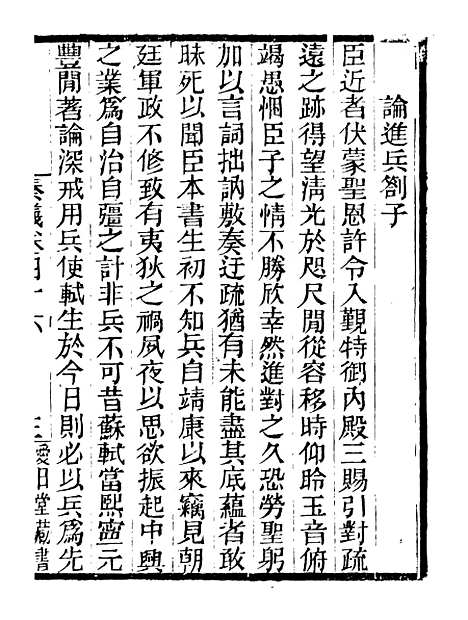 論進兵劄子
臣近者伏蒙聖恩許令入覲特御內殿三賜引對疏
遠之跡得望淸光於咫尺閒從容移時仰聆玉音俯
竭愚悃臣子之情不勝欣幸然進對之久恐勞聖躬
加以言詞拙訥敷奏迂疏猶有未能盡其底蘊者敢
昧死以聞臣本書生初不知兵自靖康以來竊見朝
廷軍政不修致有夷狄之禍夙夜以思欲振起中興
之業爲自治自彊之計非兵不可昔蘇軾當熙寧元
豐閒著論深戒用兵使軾生於今日則必以兵爲先
奏議卷四十六
三
愛日堂藏書